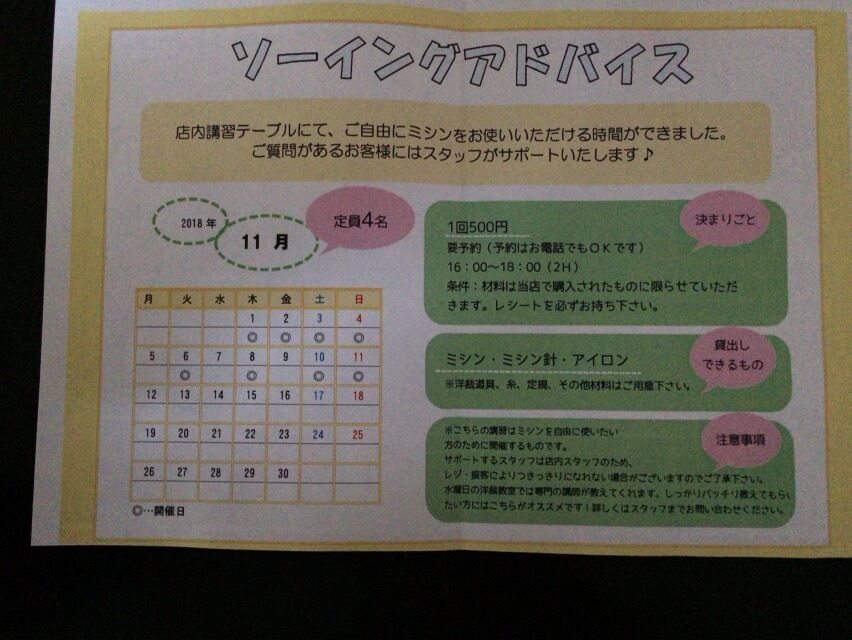 ソーイングアドバイス
店内講習テーブルにて、ご自由にミシンをお使いいただける時間ができました。
ご質問があるお客様にはスタッフがサポートいたします♪
2018 年
11 月
定員4名
月 火 水 木 金 土 日
1 2 3 4
◎ ◎ ◎ ◎
5 6 7 8 9 10 11
◎ ◎ ◎ ◎
12 13 14 15 16 17 18
19 20 21 22 23 24 25
26 27 28 29 30
◎…開催日
決まりごと
1回500円
要予約（予約はお電話でもOKです）
16：00～18：00（2H）
条件：材料は当店で購入されたものに限らせていただ
きます。レシートを必ずお持ち下さい。
貸出し
できるもの
ミシン・ミシン針・アイロン
※洋裁道具、糸、定規、その他材料はご用意下さい。
注意事項
※こちらの講習はミシンを自由に使いたい
方のために開催するものです。
サポートするスタッフは店内スタッフのため、
レジ・接客によりつきっきりになれない場合がございますのでご了承下さい。
水曜日の洋裁教室では専門の講師が教えてくれます。しっかりバッチリ教えてもらい
たい方にはこちらがオススメです！詳しくはスタッフまでお問い合わせください。